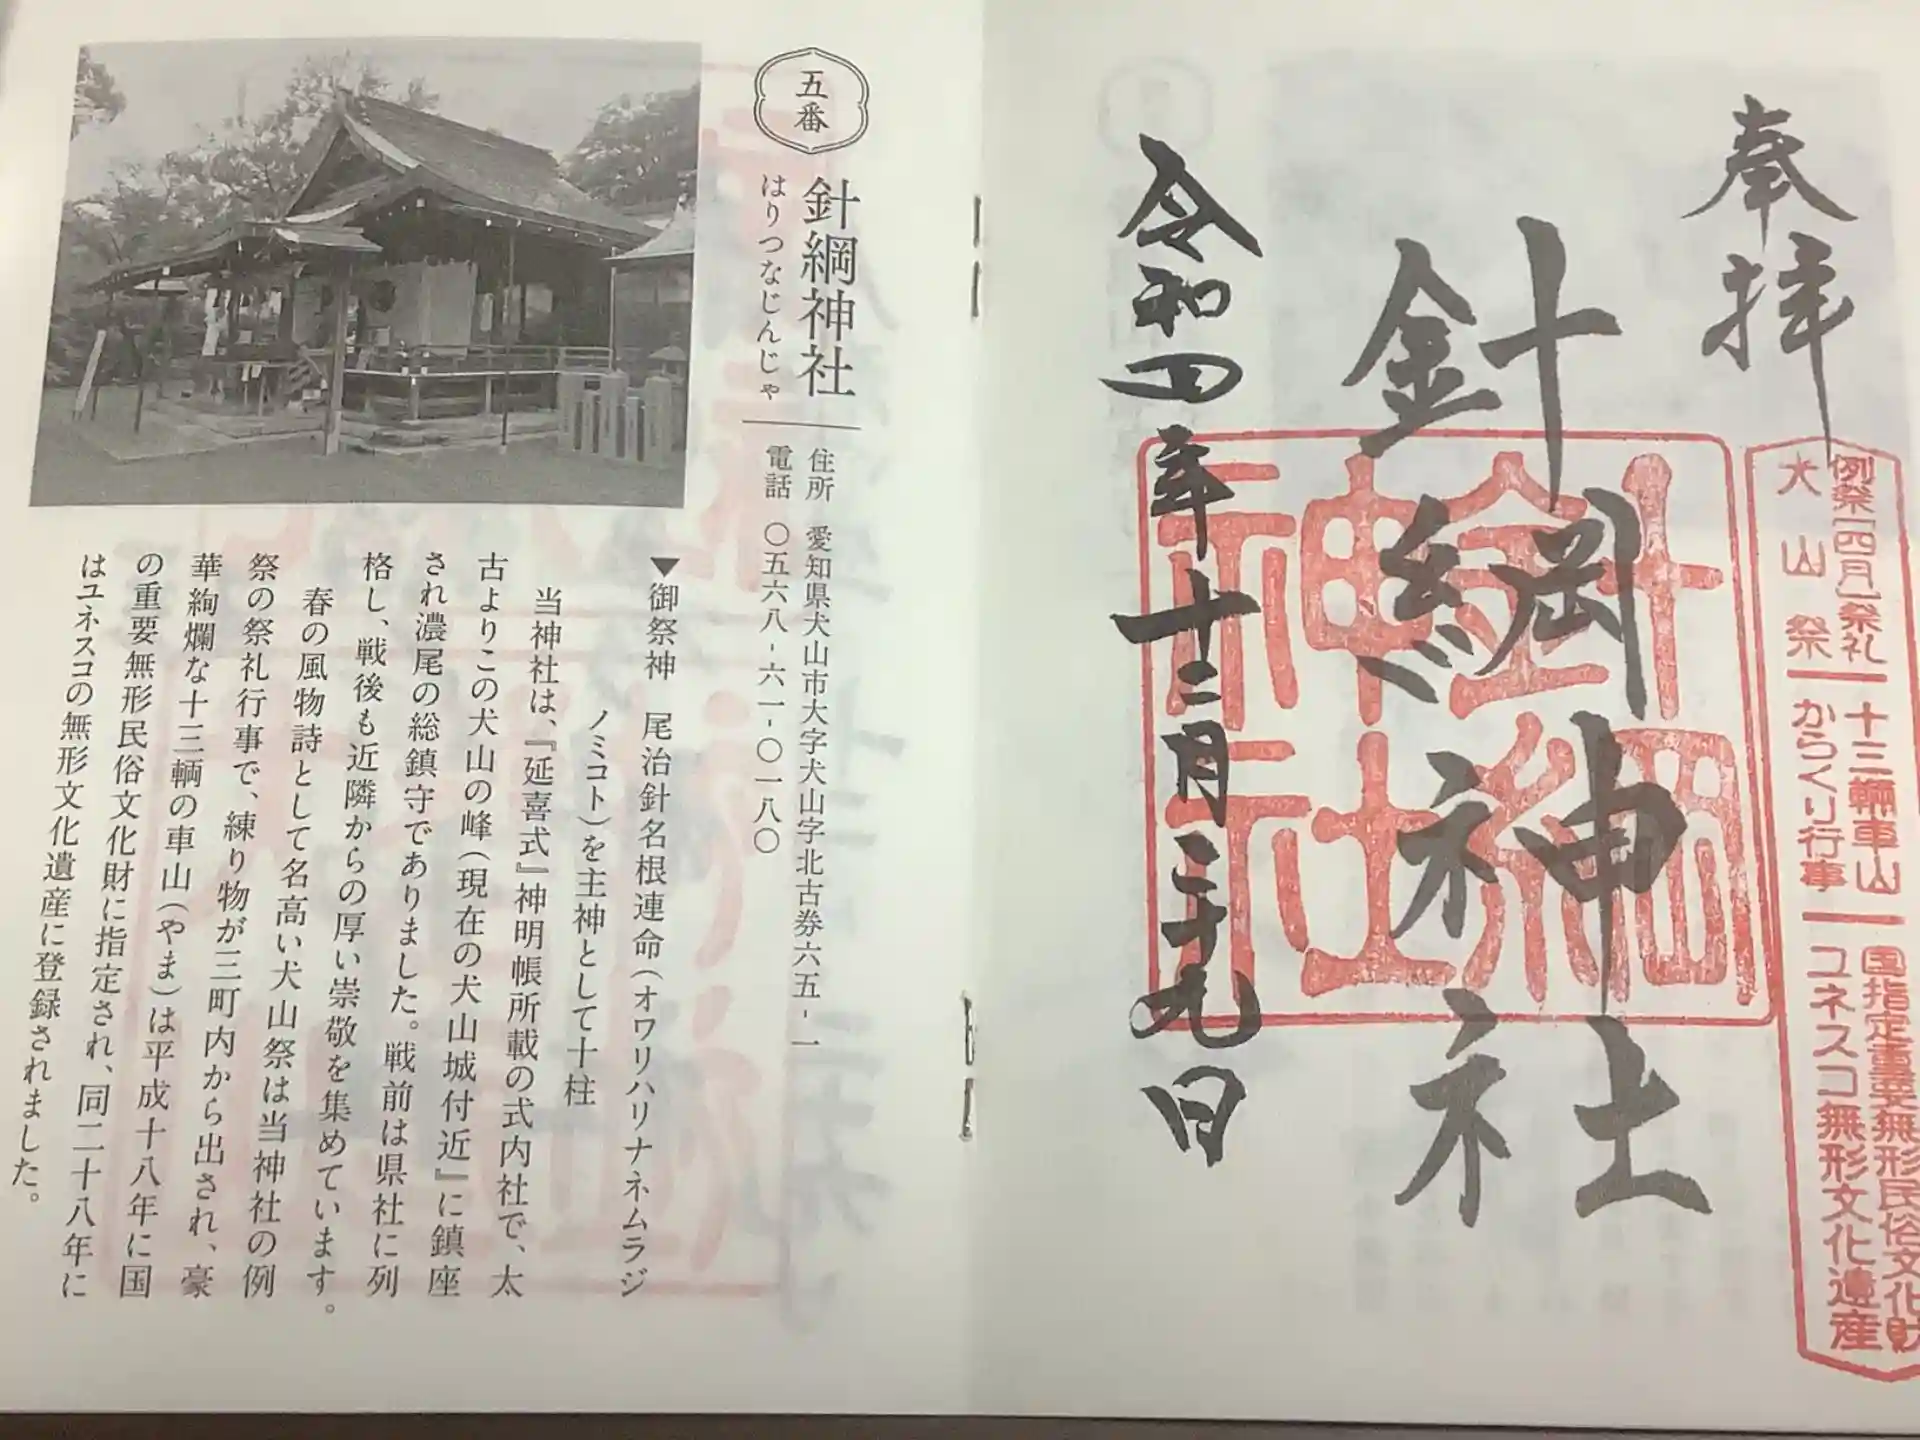 奉拝
針綱神社
令和四年十二月二十九日
針綱
神社
例祭[四月]祭礼
犬山祭
十三輛車山
からくり行事
国指定重要無形民俗文化財
ユネスコ無形文化遺産
五番
針綱神社
はりつなじんじゃ
住所 愛知県犬山市大字犬山字北古券六五-一
電話 〇五六八-六一-〇一八〇
▼御祭神 尾治針名根連命(オワリハリナネムラジ
ノミコト)を主神として十柱
当神社は、『延喜式』神明帳所載の式内社で、太
古よりこの犬山の峰(現在の犬山城付近』に鎮座
され濃尾の総鎮守でありました。戦前は県社に列
格し、戦後も近隣からの厚い崇敬を集めています。
春の風物詩として名高い犬山祭は当神社の例
祭の祭礼行事で、練り物が三町内から出され、豪
華絢爛な十三輌の車山(やま)は平成十八年に国
の重要無形民俗文化財に指定され、同二十八年に
はユネスコの無形文化遺産に登録されました。